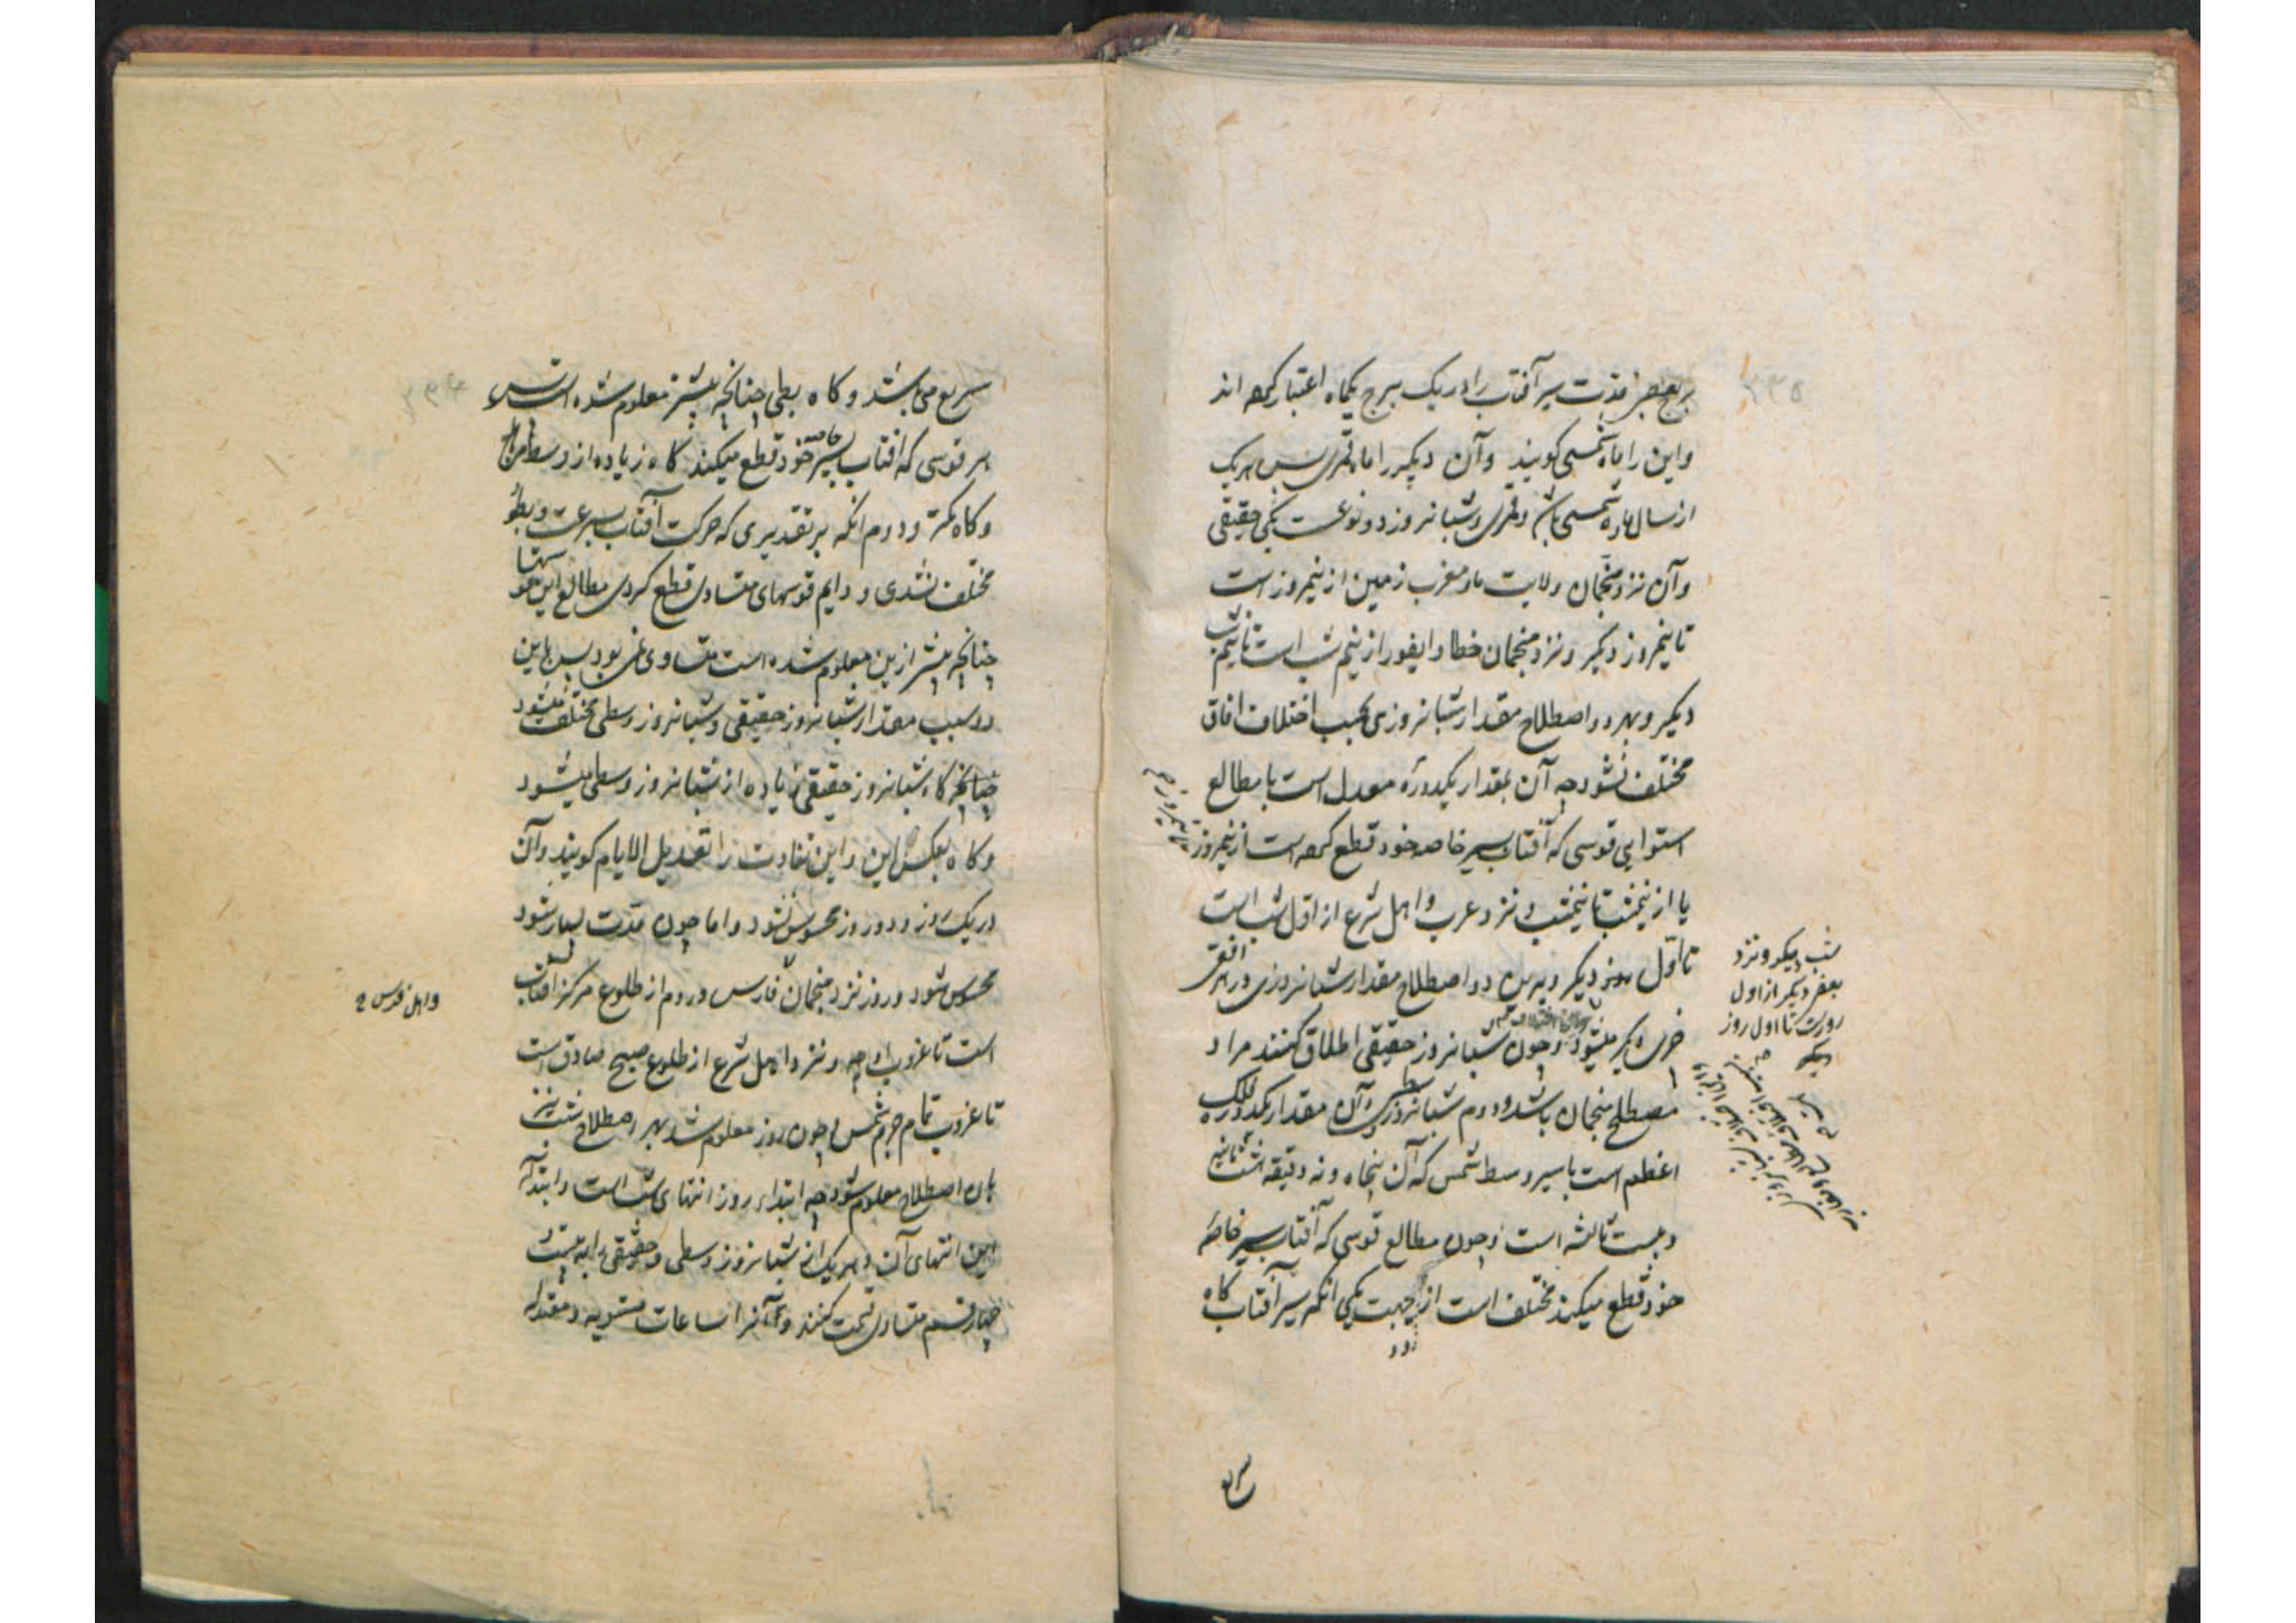 و بعضی مدت سیر آفتاب را در یک برج یکماه اعتبار کرده اند
و این را ماه شمسی گویند و آن دیگر را ماه قمری پس هر یک
از سال و ماه شمسی باشد و قمری و شبانروز دو نوعست یکی حقیقی
و آن نزد منجمان ولایت ما و مغرب زمین از نیمروز است
تا نیمروز دیگر و نزد منجمان خطا و ایغور از نیم شب است تا نیم شب
دیگر و بهر دو اصطلاح مقدار شبانروزی بحسب اختلاف افاق
مختلف نشود چه آن بمقدار یکدوره معدل است با مطالع
استوایی قوسی که آفتاب بسیر خاصه خود قطع کرده است از نیمروز
تا نیمروز
یا از نیمشب تا نیمشب و نزد عرب و اهل شرع از اول شب است
تا اول روز دیگر و برین دو اصطلاح مقدار شبانروزی در هر افق
شب دیگر و نزد
بعضی دیگر از اول
روزست تا اول روز
دیگر
دیگر میشود و چون شبانروز حقیقی اطلاق کنند مراد
مصطلح منجمان باشد و دوم شبانروز وسطی و آن مقدار یکدوره فلک
اعظم است با سیر وسط شمس که آن پنجاه و نه دقیقه هشت ثانیه
و بیست ثالثه است و چون مطالع قوسی که آفتاب بسیر خاصه
خود قطع میکند مختلف است از دو جهت یکی انکه سیر آفتاب گاه
سریع
سریع می باشد و گاه بطی چنانچه پیشتر معلوم شده است پس
هر قوسی که افتاب بسیر خاصه خود قطع میکند گاه زیاده از وسط
و گاه کمتر و دوم انکه بر تقدیری که حرکت آفتاب بسرعت و بطؤ
مختلف نشدی و دایم قوسهای متساوی قطع کردی مطالع این قوسها
چنانچه پیشتر ازین معلوم شده است متساوی نمی بود پس باین
دو سبب مقدار شبانروز حقیقی و شبانروز وسطی مختلف میشود
چنانچه گاه شبانروز حقیقی زیاده از شبانروز وسطی میشود
و گاه بعکس این و این تفاوت را تعدیل الایام گویند و آن
در یک روز و دو روز محسوس نشود و اما چون مدت بسیار شود
محسوس شود و روز نزد منجمان فارس و روم از طلوع مرکز افتاب
و اهل فرس
است تا غروب او و نزد اهل شرع از طلوع صبح صادق است
تا غروب تمام جرم شمس و چون روز معلوم شد بهر اصطلاح شب نیز
بان اصطلاح معلوم شود چه ابتداء روز انتهای شب است و ابتداء
این انتهای آن و هر یک از شبانروز وسطی و حقیقی را به بیست و
چهار قسم متساوی قسمت کنند و آنرا ساعات مستویه و معتدله